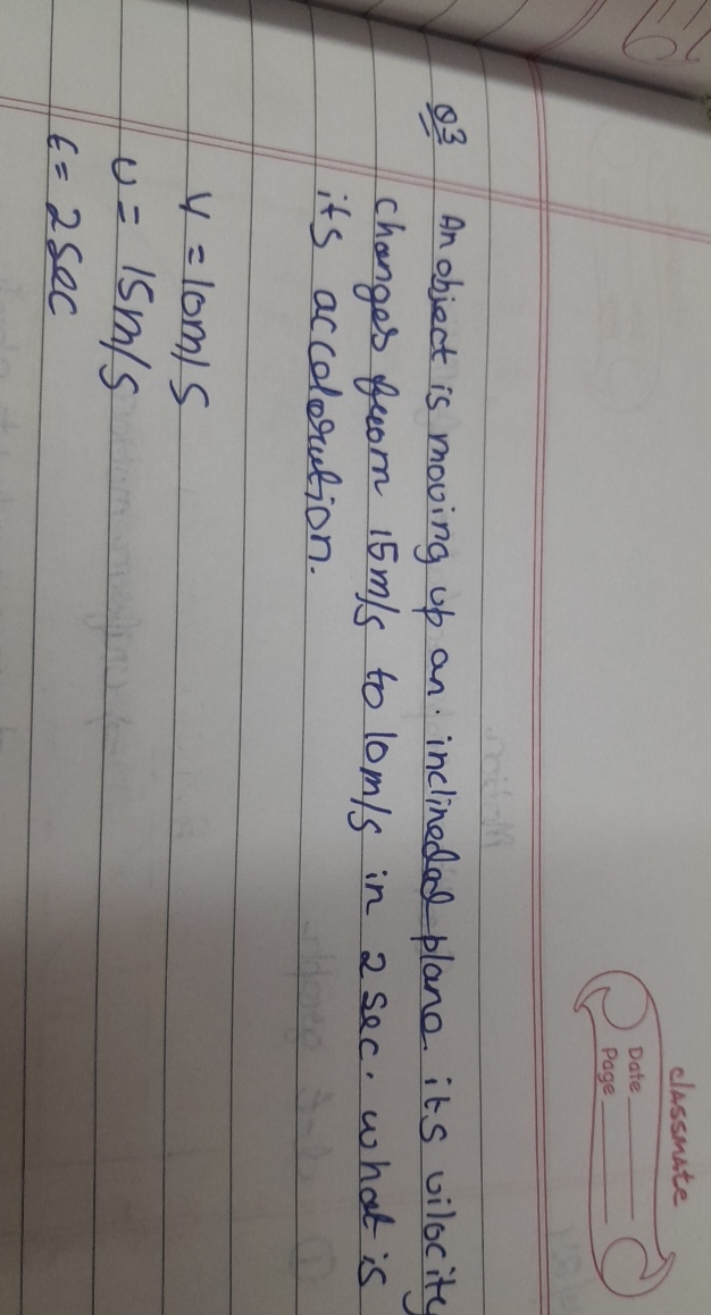 classmate
Date
Page
Q3 An object is moving up an inclined plane. its vilocity
changes from 15m/s to 10m/s in 2 sec. what is
its acceleration.
V = 10m/s
u = 15m/s
t = 2 sec